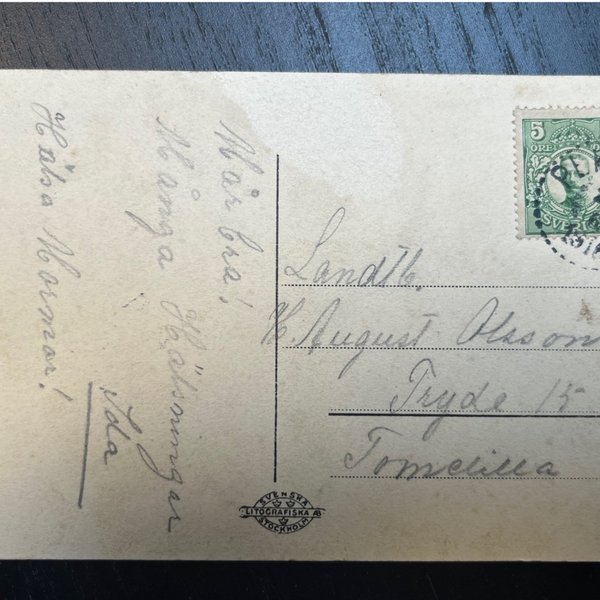 Mår bra!
Många Hälsningar
Ida
Hälsa Mormor!
5
ÖRE
SVERI
1916
Landtb.
H. August Olsson
Tryde 15
Tomelilla
SVENSKA
LITOGRAFISKA AB
STOCKHOLM